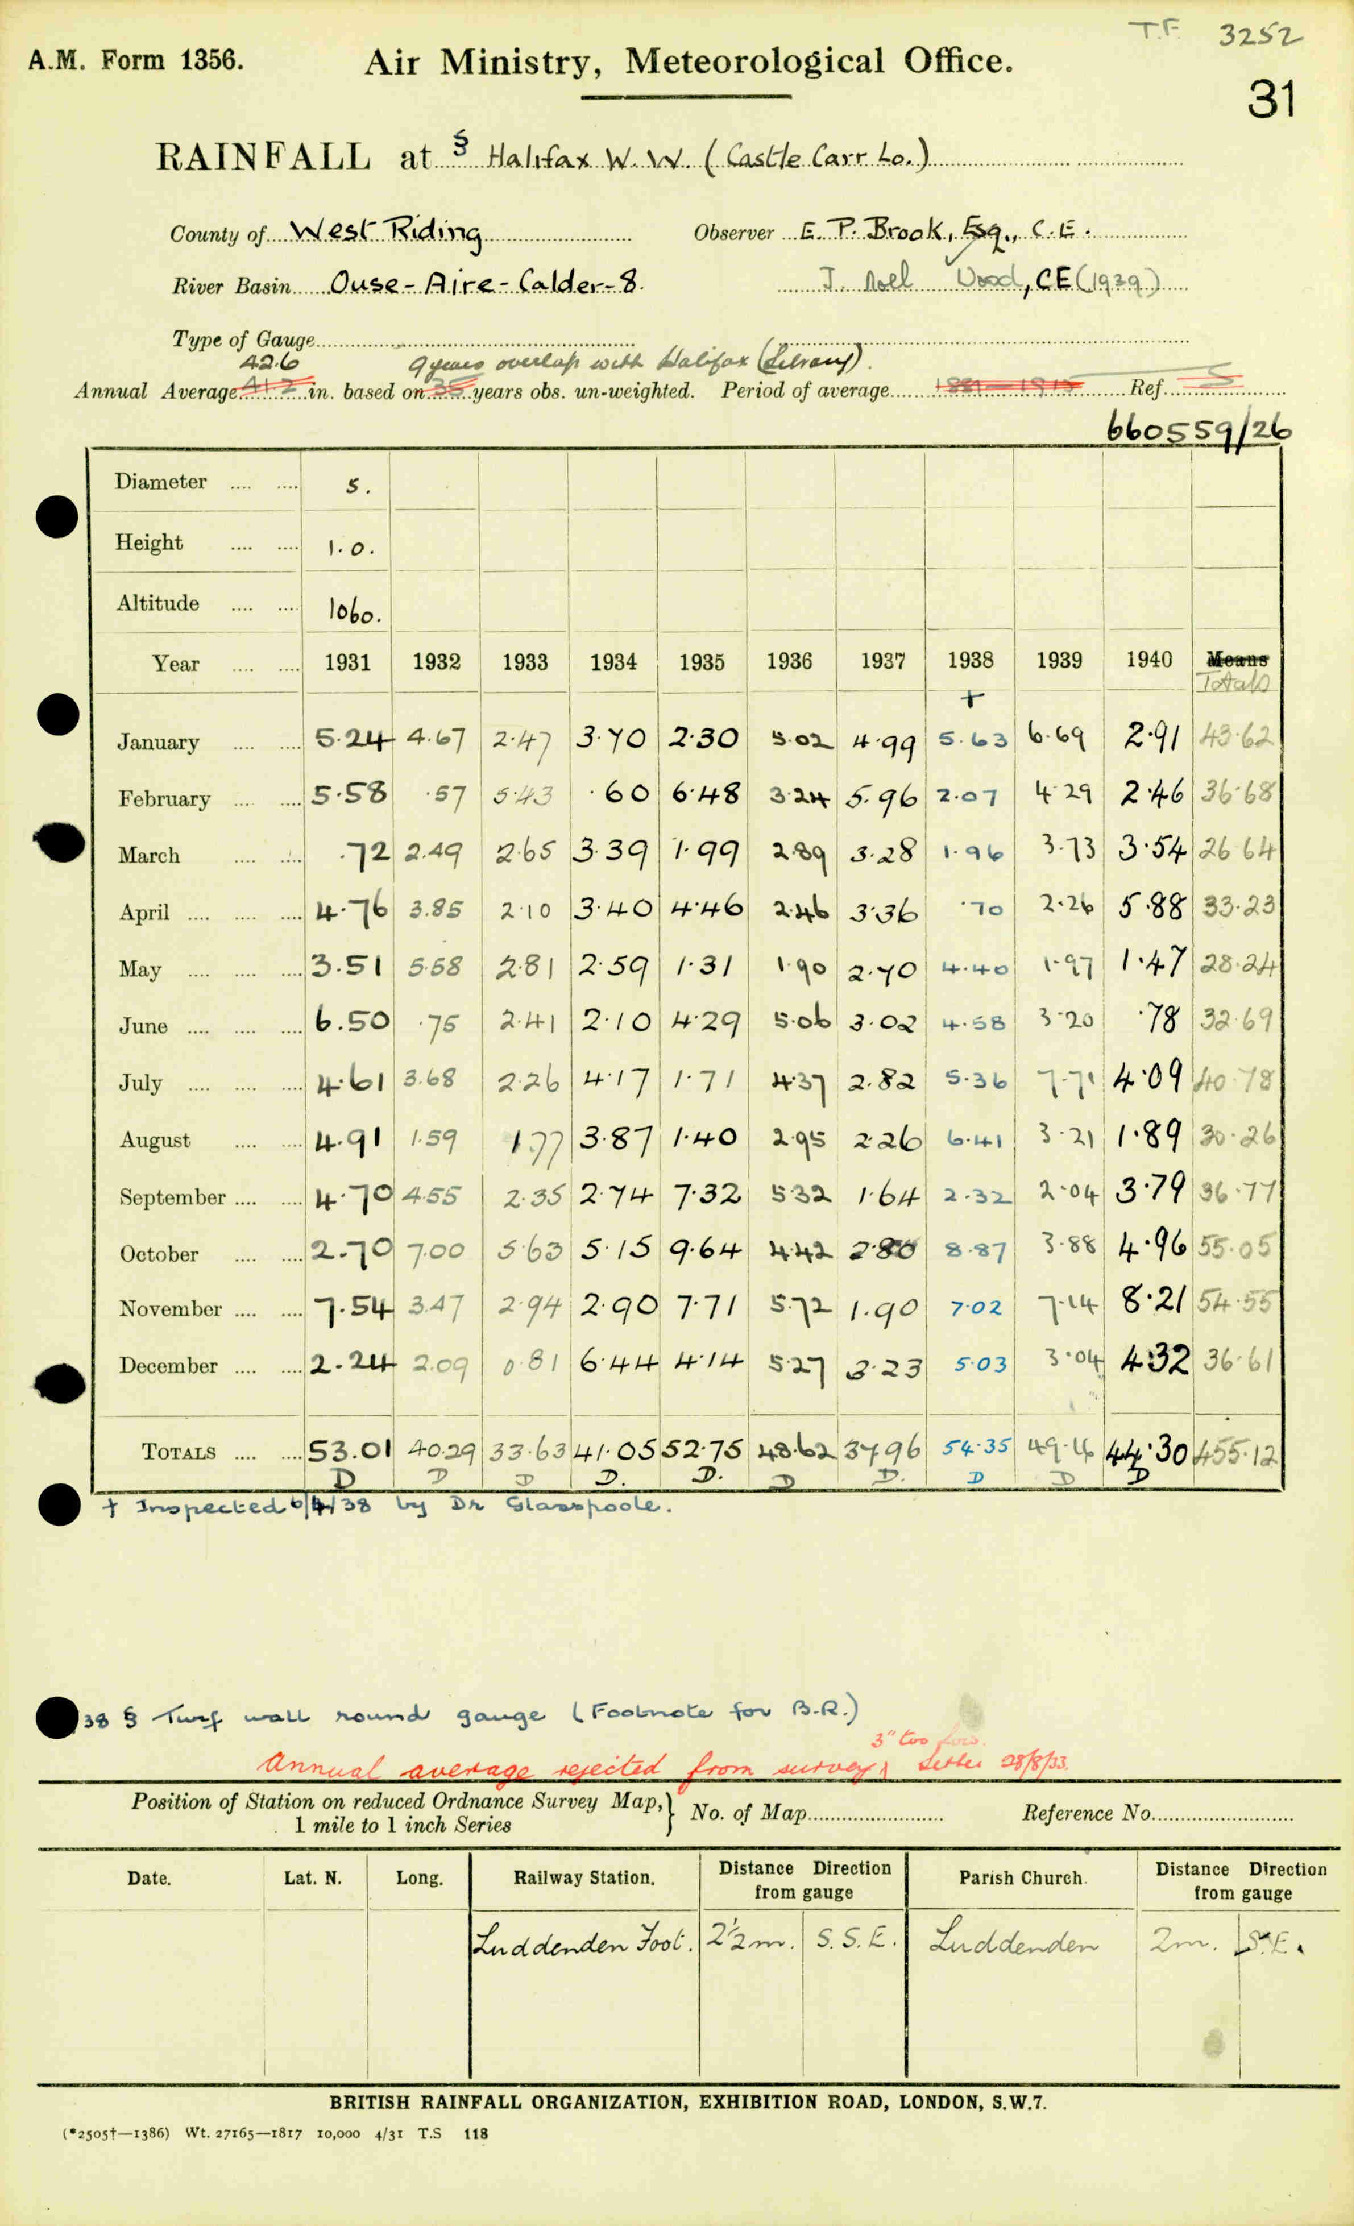 T.F. 3252
A.M. Form 1356. Air Ministry, Meteorological Office.
31
RAINFALL at § Halifax W.W. (Castle Carr Lo.)
County of West Riding Observer E. P. Brook, Esq., C.E.
River Basin Ouse-Aire-Calder-8. J. Noel Wood, CE (1939)
Type of Gauge
42.6 9 years overlap with Halifax (Library).
Annual Average 41.2 in. based on 35 years obs. un-weighted. Period of average 1881-1915 Ref. S
660559/26
Diameter .... .... 5.
Height .... .... 1.0.
Altitude .... .... 1060.
Year .... .... 1931 1932 1933 1934 1935 1936 1937 1938 1939 1940 Means
+ Totals
January .... .... 5.24 4.67 2.47 3.70 2.30 5.02 4.99 5.63 6.69 2.91 43.62
February .... .... 5.58 .57 5.43 .60 6.48 3.24 5.96 2.07 4.29 2.46 36.68
March .... .... .72 2.49 2.65 3.39 1.99 2.89 3.28 1.96 3.73 3.54 26.64
April .... .... .... 4.76 3.85 2.10 3.40 4.46 2.46 3.36 .70 2.26 5.88 33.23
May .... .... .... 3.51 5.58 2.81 2.59 1.31 1.90 2.70 4.40 1.97 1.47 28.24
June .... .... .... 6.50 .75 2.41 2.10 4.29 5.06 3.02 4.58 3.20 .78 32.69
July .... .... .... 4.61 3.68 2.26 4.17 1.71 4.37 2.82 5.36 7.71 4.09 40.78
August .... .... 4.91 1.59 1.77 3.87 1.40 2.95 2.26 6.41 3.21 1.89 30.26
September .... .... 4.70 4.55 2.35 2.74 7.32 5.32 1.64 2.32 2.04 3.79 36.77
October .... .... 2.70 7.00 5.63 5.15 9.64 4.42 2.80 8.87 3.88 4.96 55.05
November .... .... 7.54 3.47 2.94 2.90 7.71 5.72 1.90 7.02 7.14 8.21 54.55
December .... .... 2.24 2.09 0.81 6.44 4.14 5.27 3.23 5.03 3.04 4.32 36.61
TOTALS .... .... 53.01 40.29 33.63 41.05 52.75 48.62 37.96 54.35 49.16 44.30 455.12
D D D D. D. D D. D D D
+ Inspected 6/4/38 by Dr Glasspoole.
38 § Turf wall round gauge (Footnote for B.R.)
3" too low.
Annual average rejected from survey Letter 28/8/33.
Position of Station on reduced Ordnance Survey Map, } No. of Map Reference No.
1 mile to 1 inch Series
Date. Lat. N. Long. Railway Station. Distance Direction from gauge Parish Church. Distance Direction from gauge
Luddenden Foot. 2½m. S.S.E. Luddenden 2m. S.E.
BRITISH RAINFALL ORGANIZATION, EXHIBITION ROAD, LONDON, S.W.7.
(*2505†—1386) Wt. 27165—1817 10,000 4/31 T.S 118